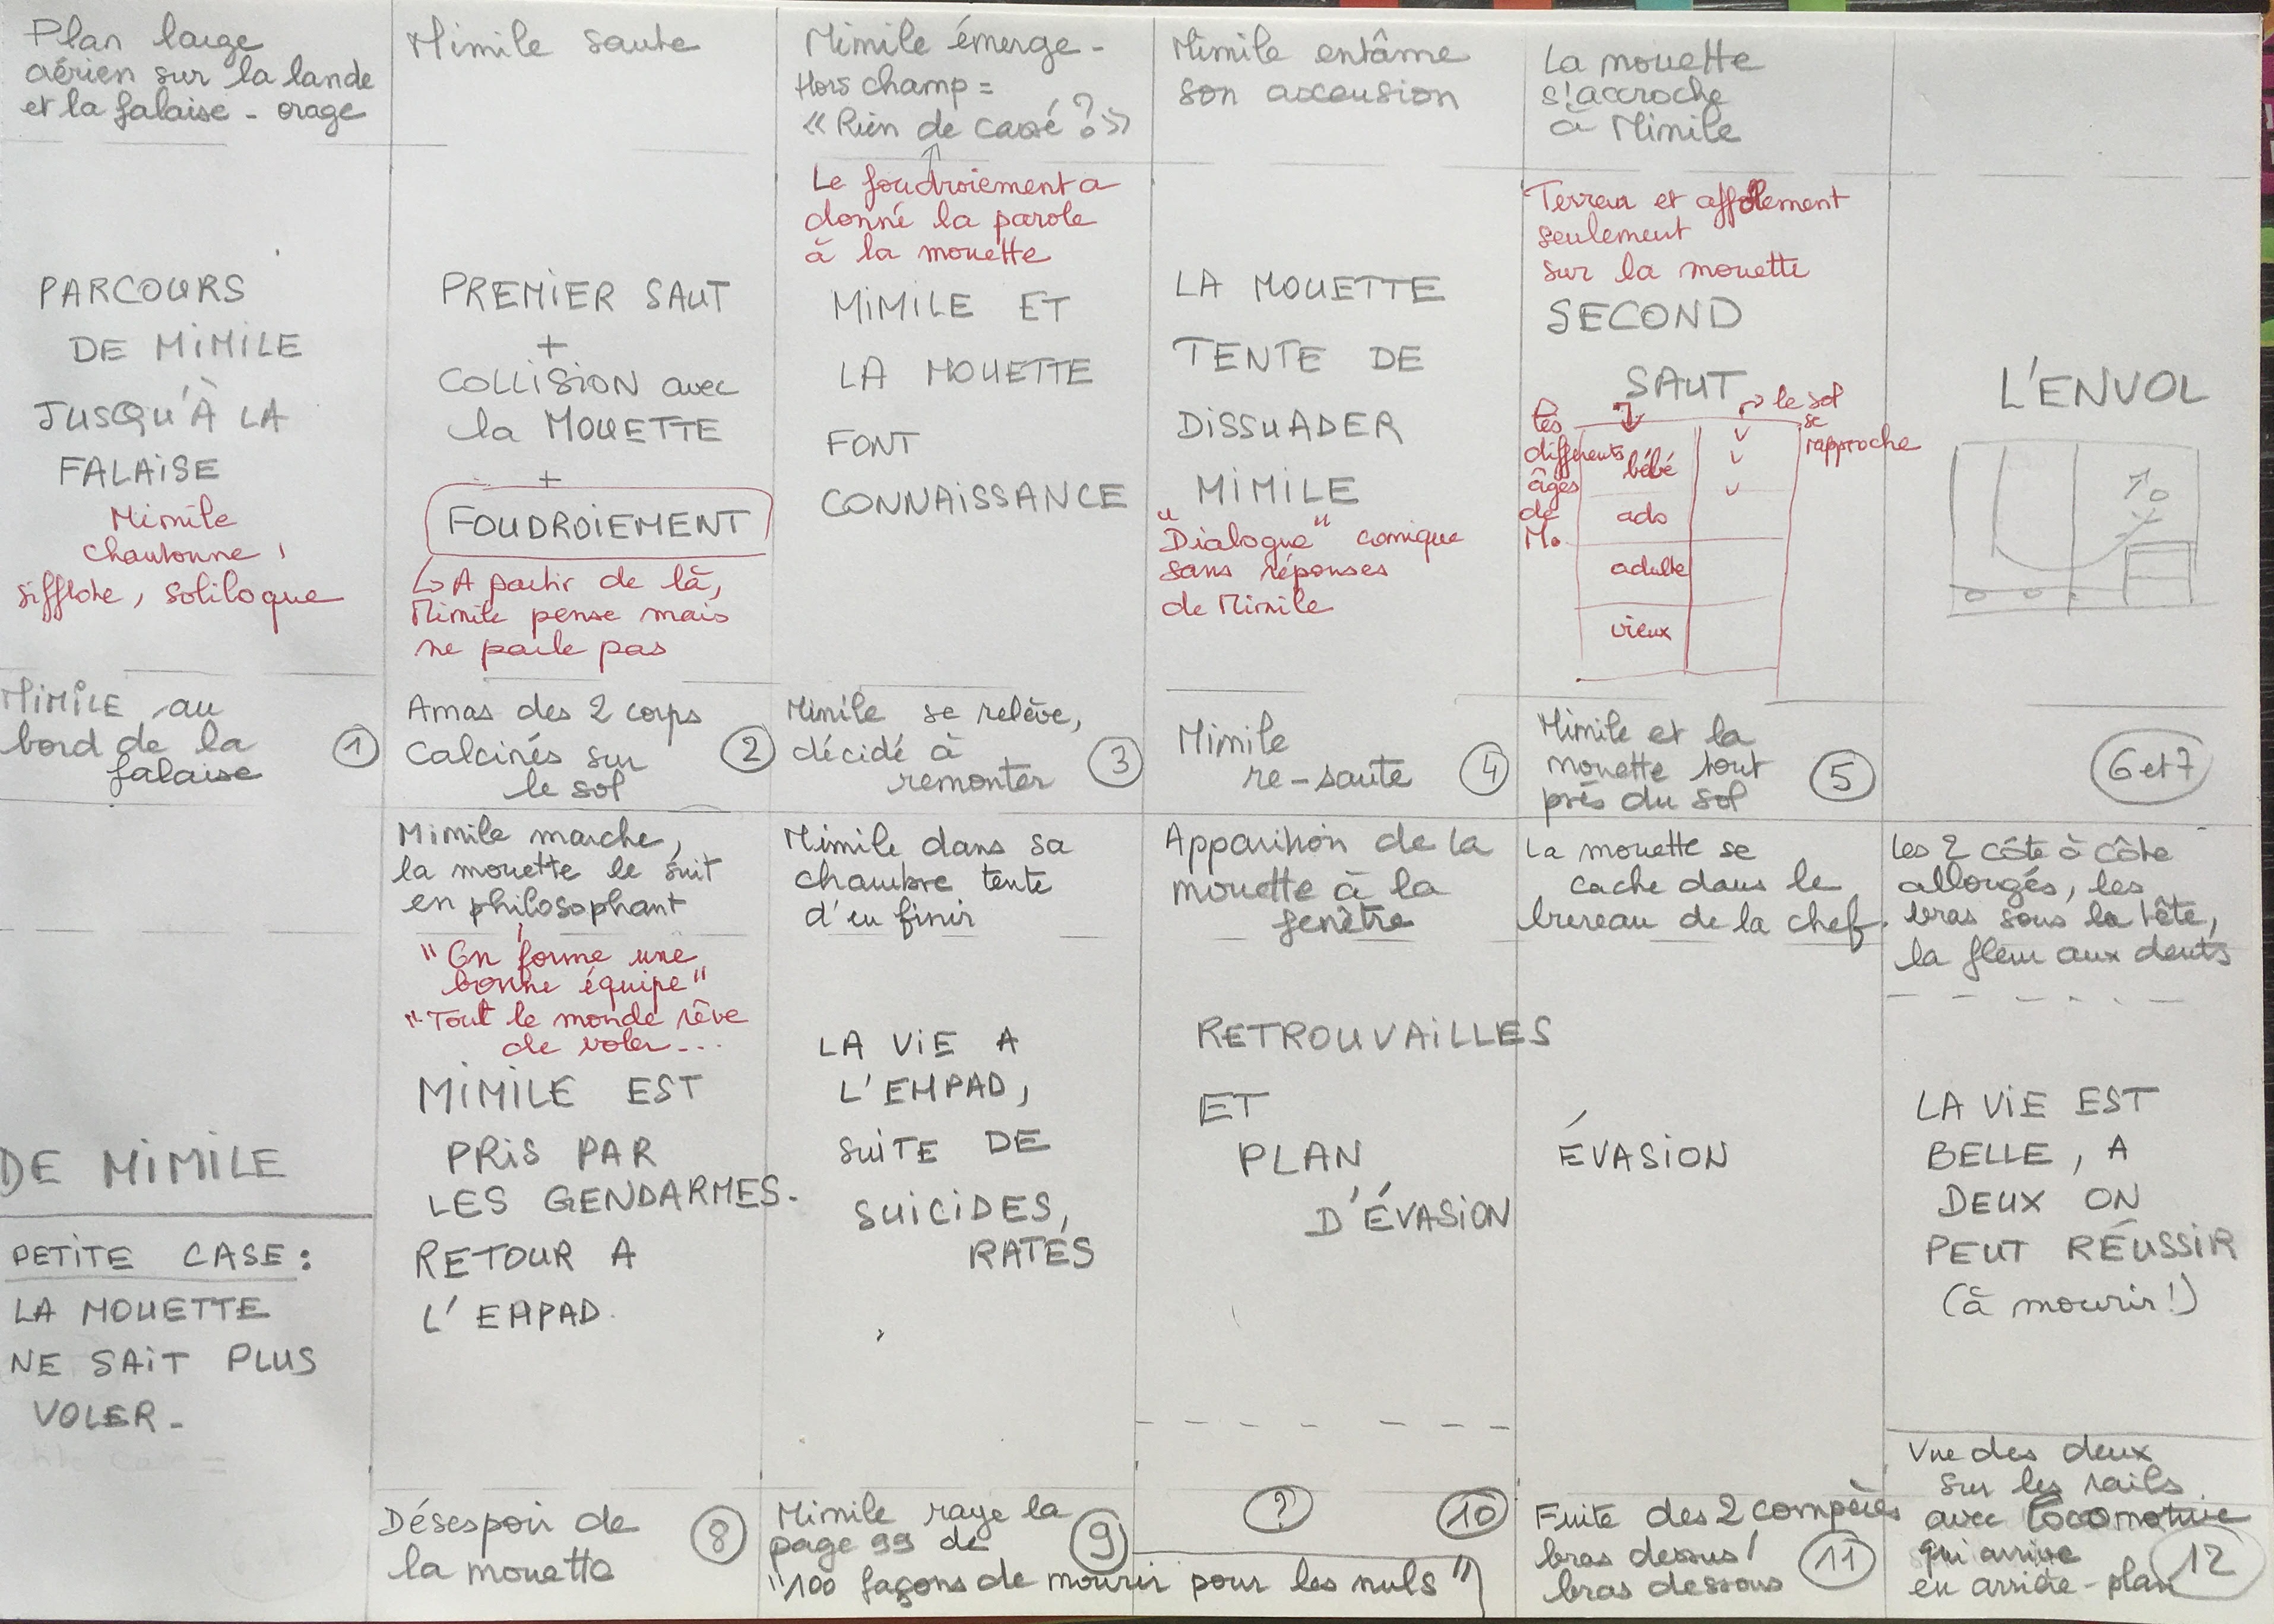 Plan large
aérien sur la lande
et la falaise - orage
PARCOURS
DE MiMiLE
JUSQU'À LA
FALAiSE
Mimile
chantonne,
sifflote, soliloque
MiMiLE au
bord de la
falaise
1
Mimile saute
PREMiER SAUT
+
COLLiSiON avec
la MOUETTE
+
FOUDROiEMENT
↳ A partir de là,
Mimile pense mais
ne parle pas
Amas des 2 corps
calcinés sur
le sol
2
Mimile émerge -
Hors champ =
« Rien de cassé ? »
Le foudroiement a
donné la parole
à la mouette
MiMiLE ET
LA MOUETTE
FONT
CONNAiSSANCE
Mimile se relève,
décidé à
remonter
3
Mimile entâme
son ascension
LA MOUETTE
TENTE DE
DiSSUADER
MiMiLE
"Dialogue" comique
sans réponses
de Mimile
Mimile
re-saute
4
La mouette
s'accroche
à Mimile
Terreur et affolement
seulement
sur la mouette
SECOND
SAUT
Les
différents
âges
de
M.
bébé
ado
adulte
vieux
le sol
se
rapproche
Mimile et la
mouette tout
près du sol
5
L'ENVOL
6 et 7
DE MiMiLE
PETiTE CASE :
LA MOUETTE
NE SAiT PLUS
VOLER -
Mimile marche,
la mouette le suit
en philosophant
"On forme une
bonne équipe"
"Tout le monde rêve
de voler...
MiMiLE EST
PRiS PAR
LES GENDARMES.
RETOUR A
L'EHPAD.
Désespoir de
la mouette
8
Mimile dans sa
chambre tente
d'en finir
LA ViE A
L'EHPAD,
SUiTE DE
SUiCiDES,
RATES
Mimile raye la
page 99 de
"100 façons de mourir pour les nuls"
9
Apparition de la
mouette à la
fenêtre
RETROUVAiLLES
ET
PLAN
D'ÉVASiON
?
10
La mouette se
cache dans le
bureau de la chef.
ÉVASiON
Fuite des 2 compères
bras dessus /
bras dessous
11
Les 2 côte à côte
allongés, les
bras sous la tête,
la fleur aux dents
LA ViE EST
BELLE, A
DEUX ON
PEUT RÉUSSiR
(à mourir !)
Vue des deux
sur les rails
avec locomotive
qui arrive
en arrière-plan
12